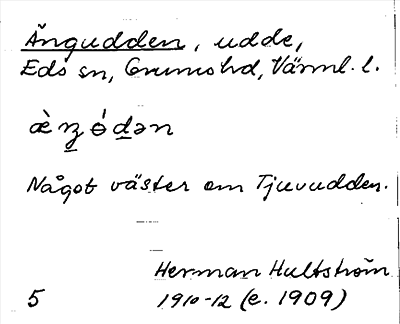 Ängudden, udde,
Eds sn, Grums hd, Värml. l.
æ̀ŋɵ́dən
Något väster om Tjuvudden.
Herman Hultström
5 1910-12 (e. 1909)